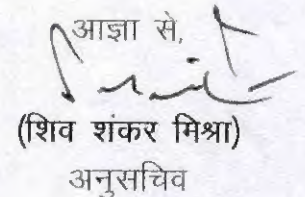 आज्ञा से,
(शिव शंकर मिश्रा)
अनुसचिव